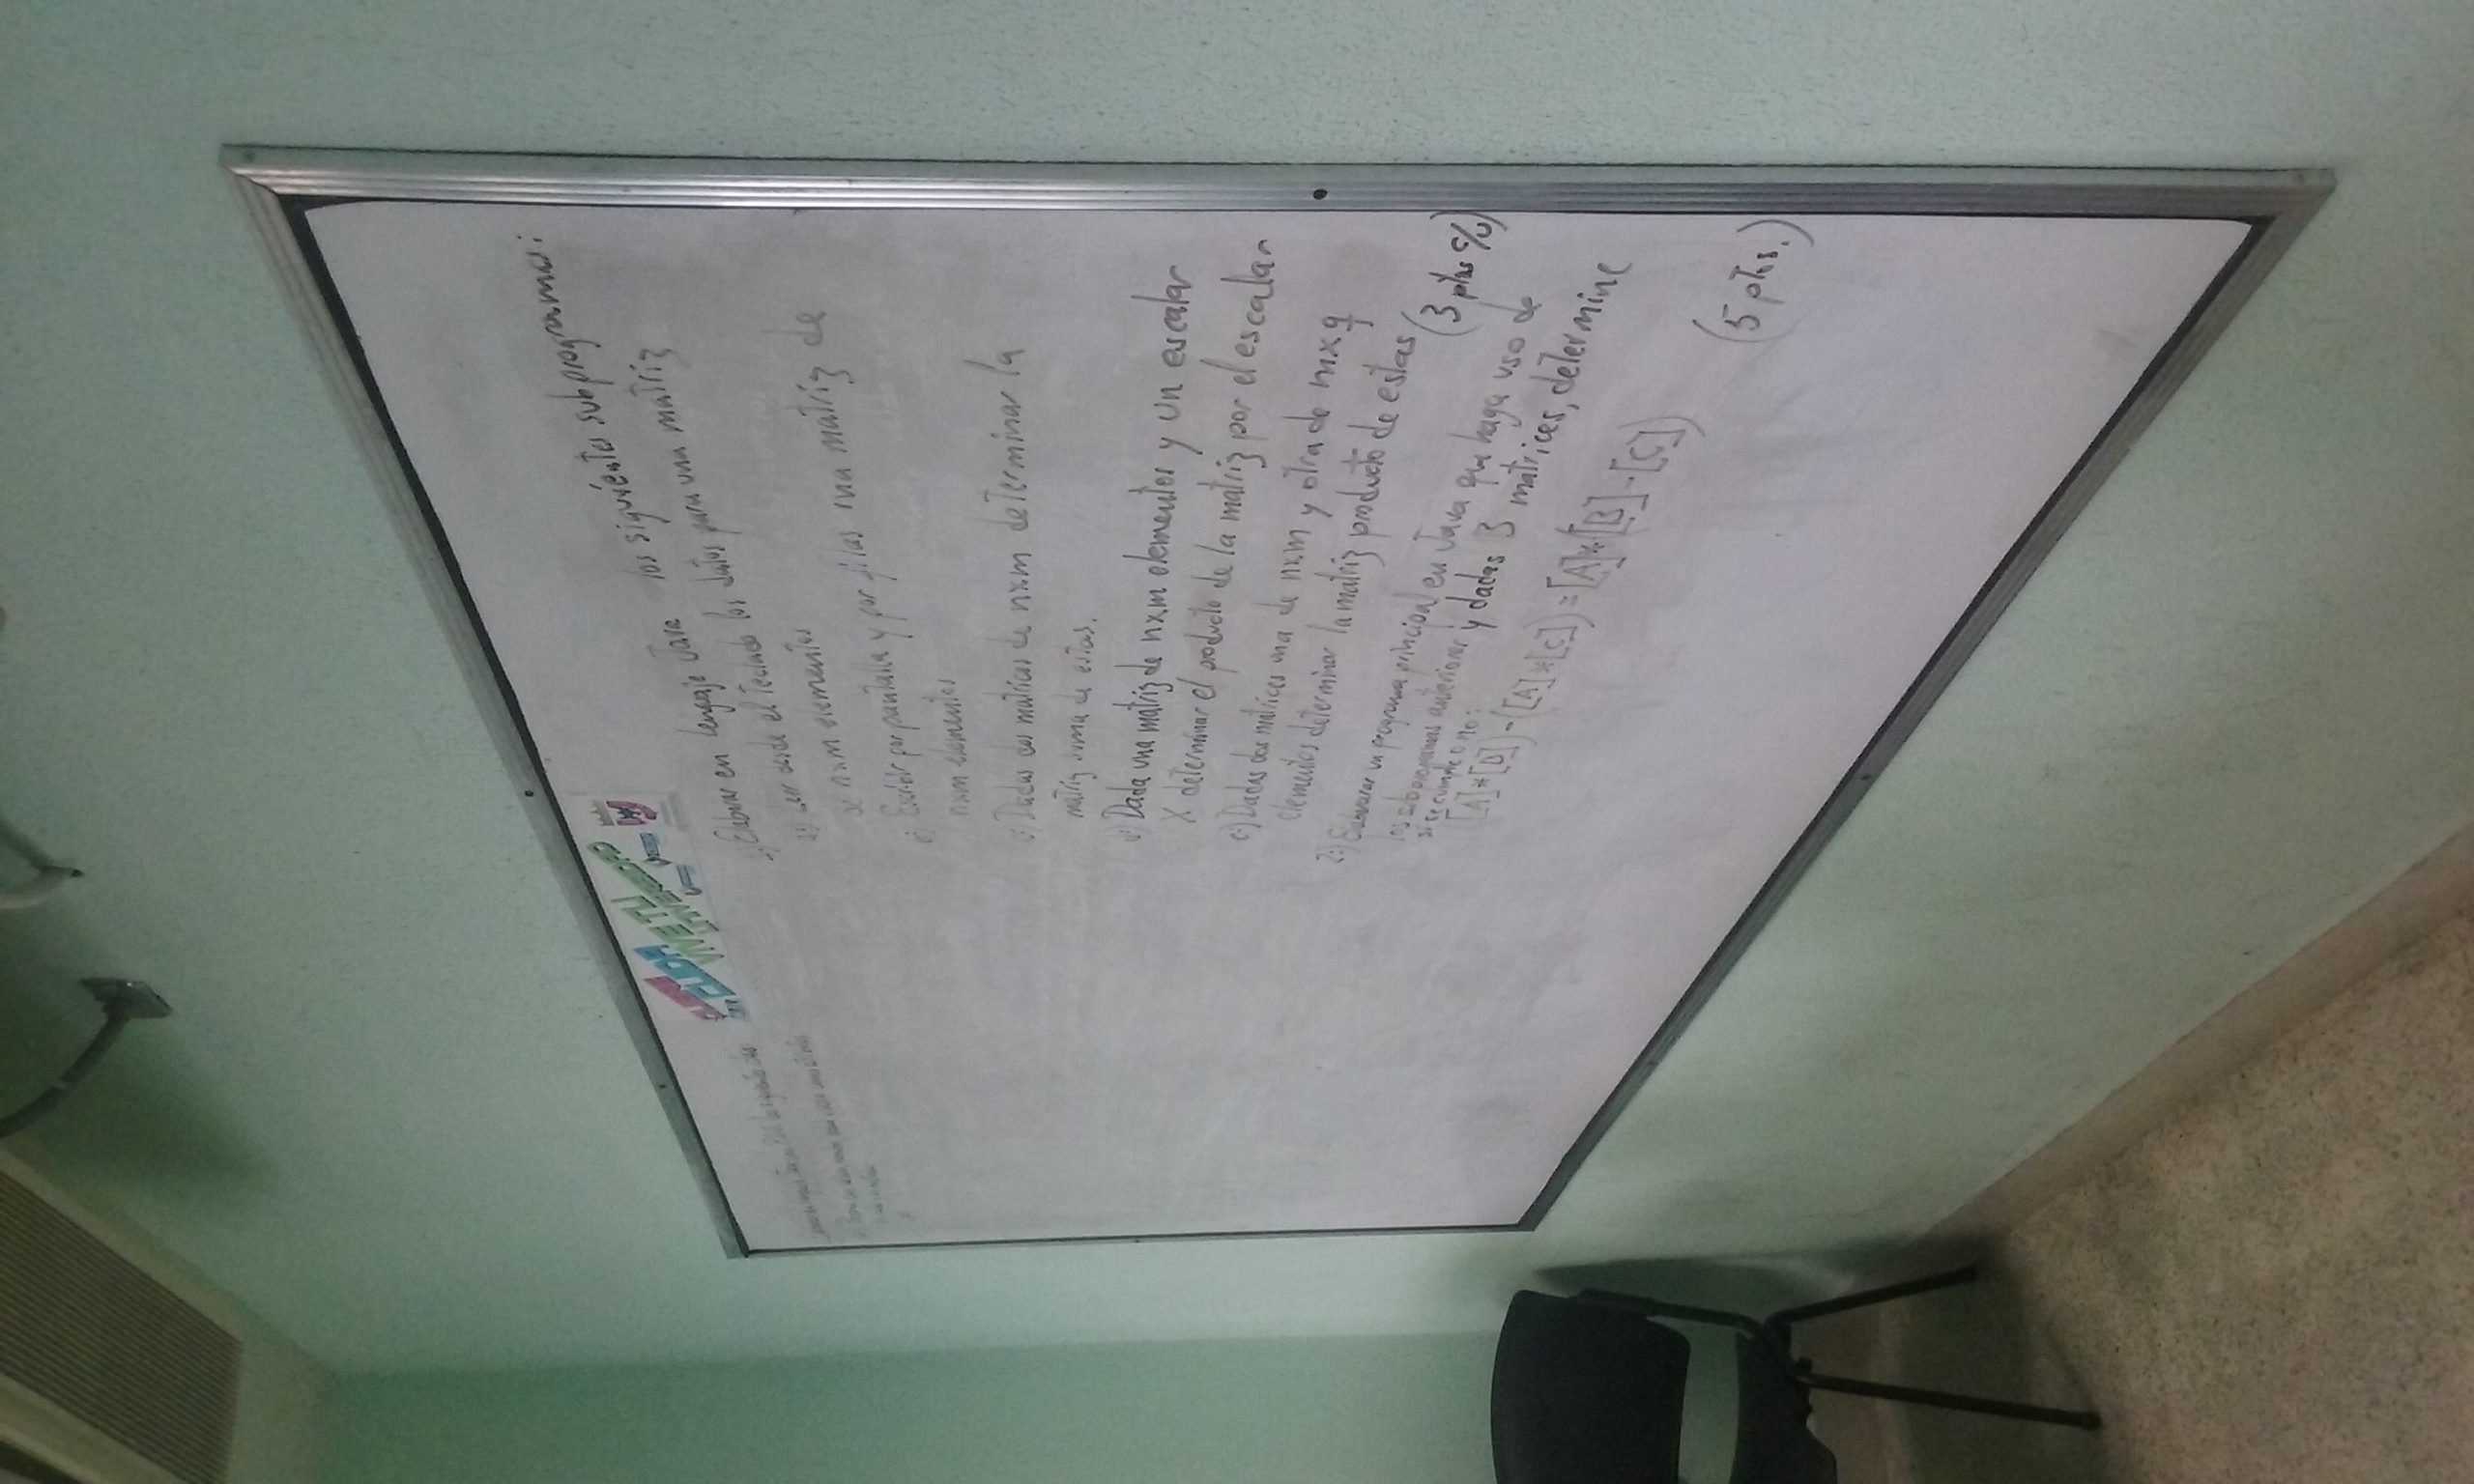 CUIDA
VIVE TU
UNIVERSIDAD
Elaborar en lenguaje Java los siguientes
1.) Elaborar en lenguaje Java los siguientes subprogramas:
a.) Leer desde el teclado los datos para una matriz
de nxm elementos
b.) Escribir por pantalla y por filas una matriz de
nxm elementos
c.) Dadas dos matrices de nxm determinar la
matriz suma de estas.
d.) Dada una matriz de nxm elementos y un escalar
X determinar el producto de la matriz por el escalar
e.) Dadas dos matrices una de nxm y otra de mxq
elementos determinar la matriz producto de estas (3 ptos c/u)
2.) Elaborar un programa principal en Java que haga uso de
los subprogramas anteriores y dadas 3 matrices, determine
si se cumple o no:
([A]*[B])-([A]*[C])=[A]*([B]-[C])
(5 ptos.)